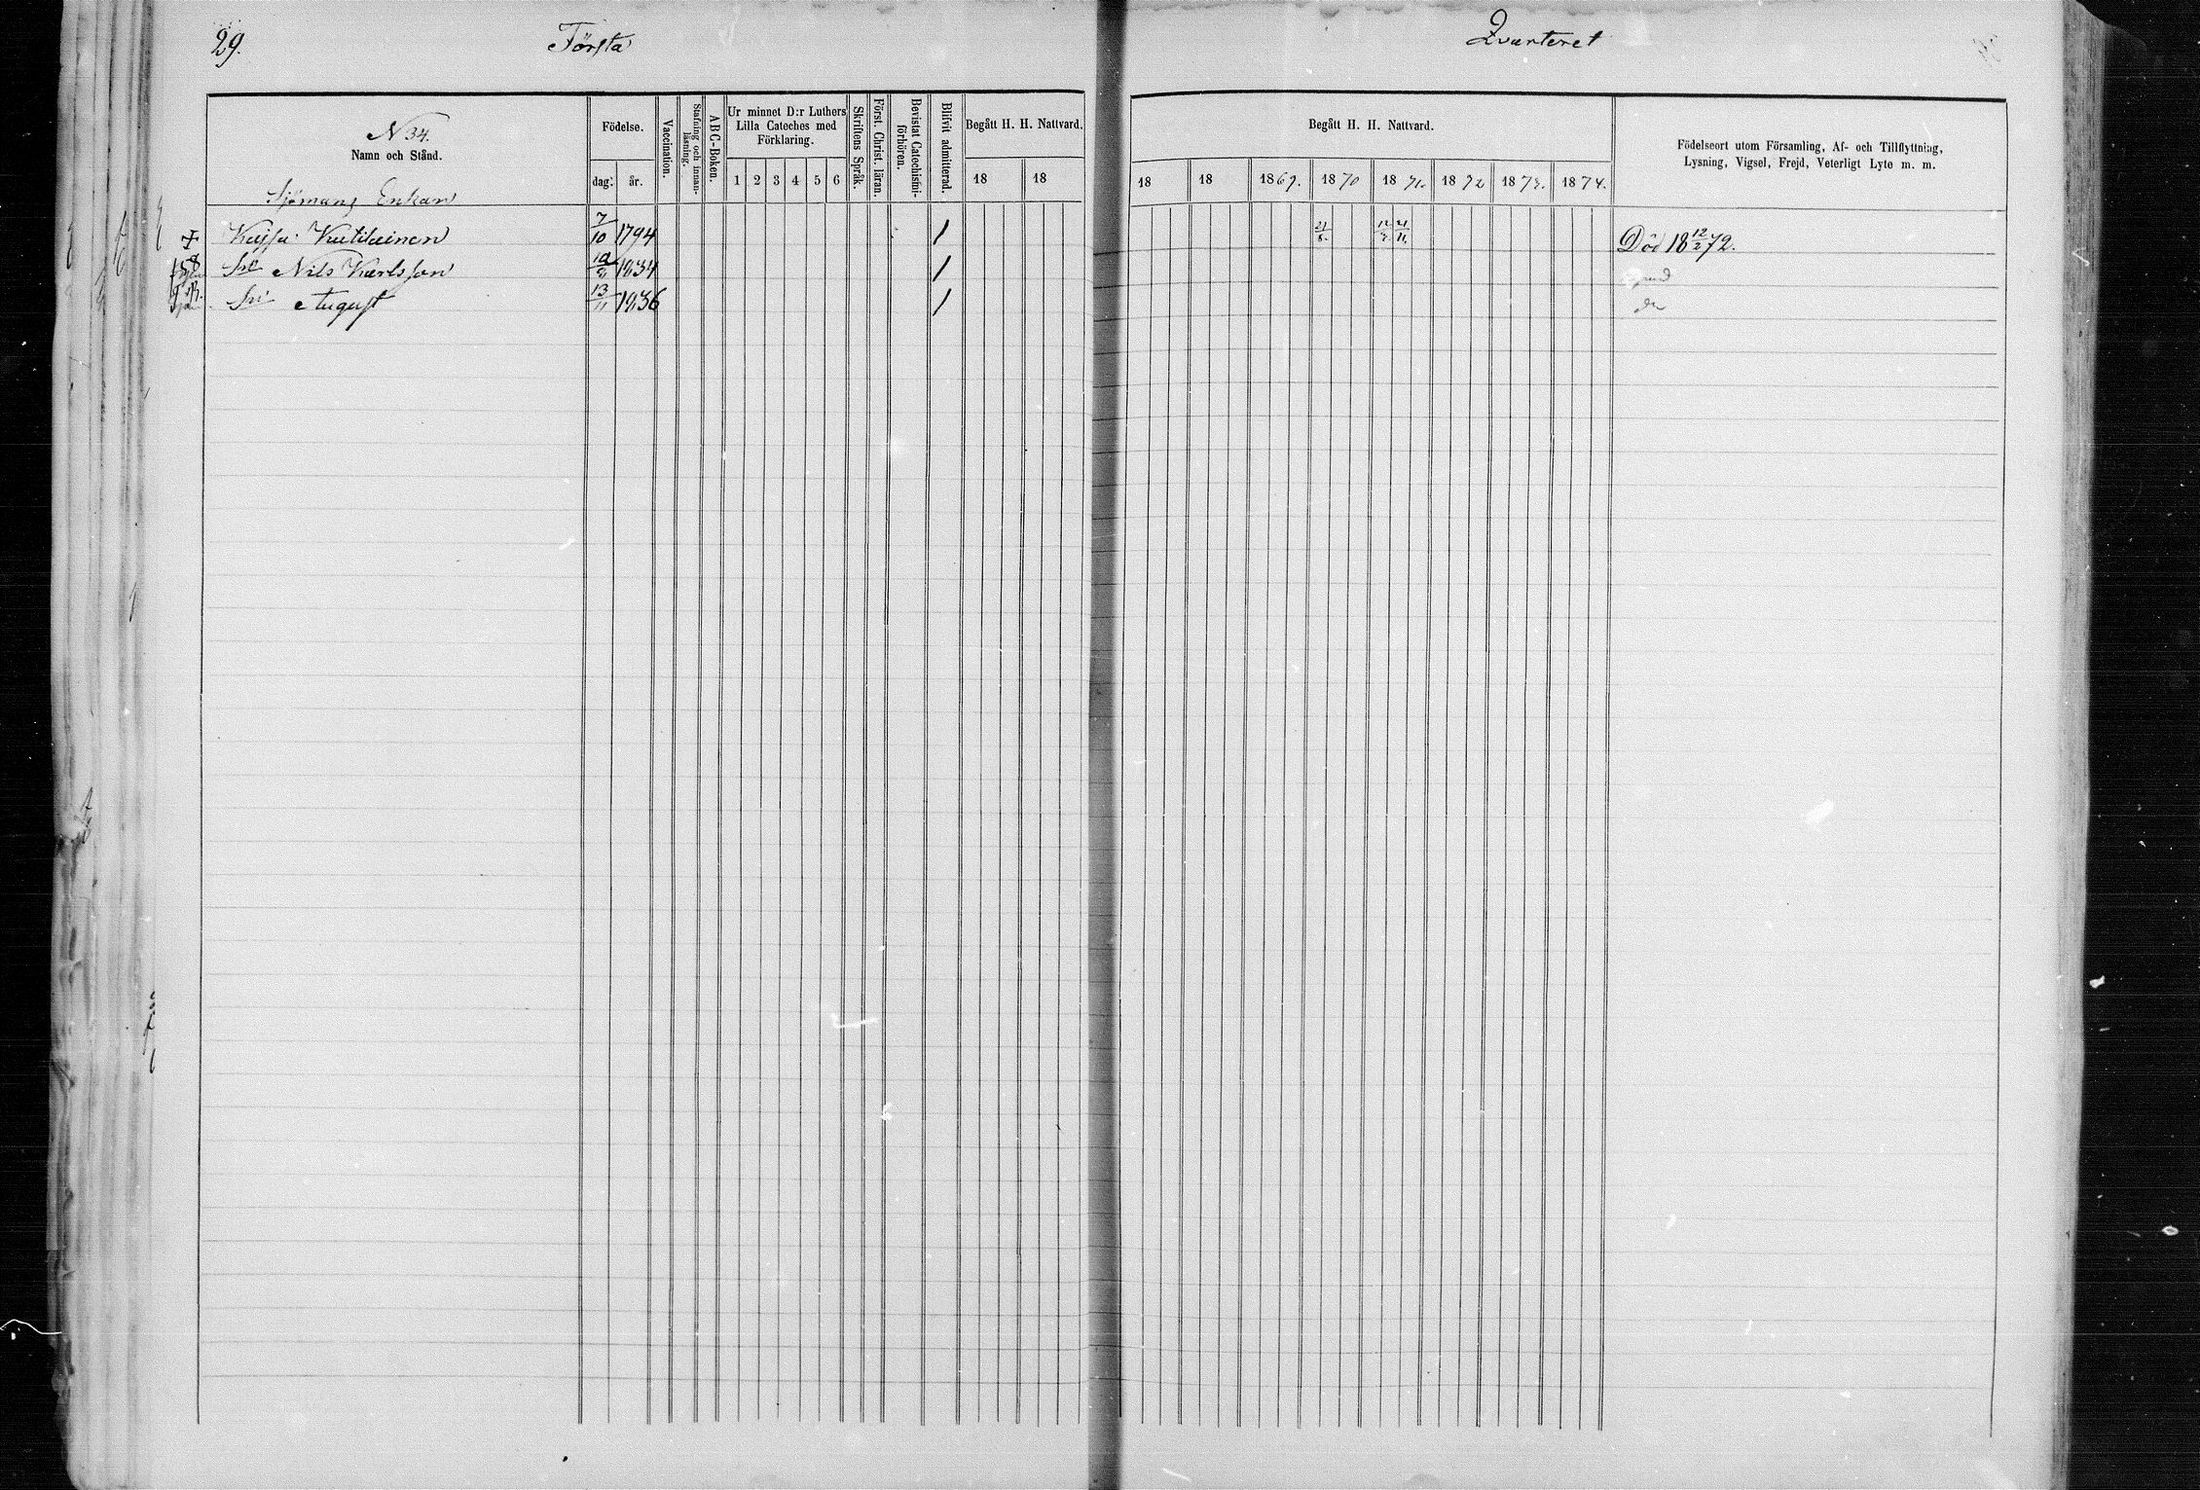 29. Första Qvarteret
N 34.
Namn och Stånd.
Födelse.
dag. år.
Vaccination.
Stafning och innanläsning.
ABC-Boken.
Ur minnet D:r Luthers Lilla Cateches med Förklaring.
1 2 3 4 5 6
Skriftens Språk.
Först. Christ. läran.
Bevistat Catechismi-förhören.
Blifvit admitterad.
Begått H. H. Nattvard.
18 18
Begått H. H. Nattvard.
18 18 1869. 1870 1871. 1872 1873. 1874.
Födelseort utom Församling, Af- och Tillflyttning, Lysning, Vigsel, Frejd, Veterligt Lyte m. m.
Sjömans Enkan
Kajsa Kutilainen 7/10 1794 / 21/8. 12/3. 21/11. Död 18 12/2 72.
Sn Nils Karlsson 1834 /
Sn August 13/11 1836 /